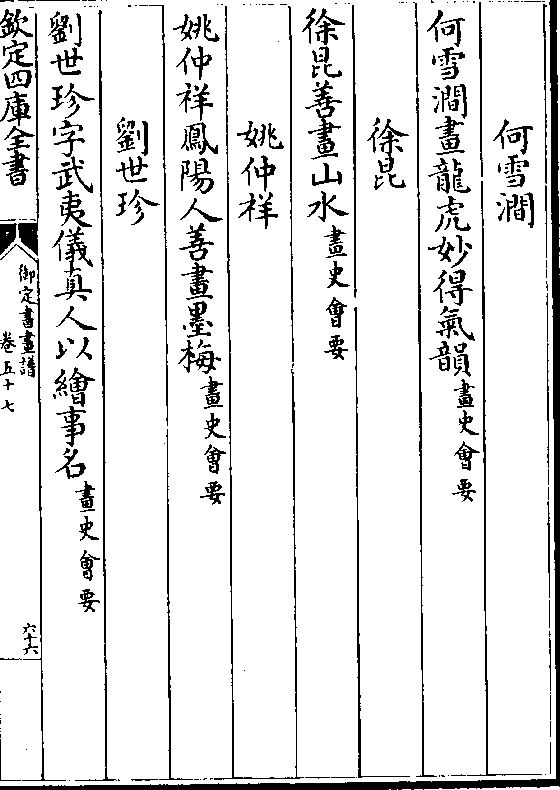 何雪澗
何雪澗畫龍虎妙得氣韻畫史會要
徐昆
徐昆善畫山水畫史會要
姚仲祥
姚仲祥鳳陽人善畫墨梅畫史會要
劉世珍
劉世珍字武夷儀真人以繪事名畫史會要
欽定四庫全書
御定書畫譜
卷五十七
六十六